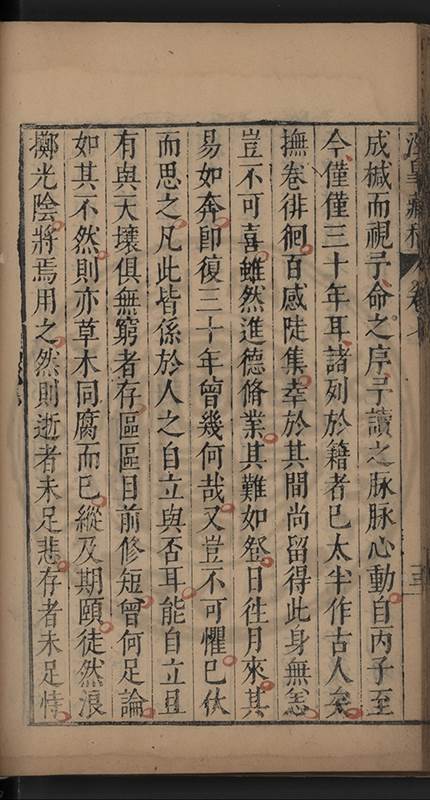 卷
成槭而視予命之序予讀之脉脉心動自丙子至
今僅僅三十年耳諸列於籍者已太半作古人矣
撫卷徘徊百感陡集幸於其間尚留得此身無恙
豈不可喜雖然進德脩業其難如登日往月來其
易如奔卽復三十年曾幾何哉又豈不可懼已伏
而思之凡此皆係於人之自立與否耳能自立且
有與天壤俱無窮者存區區目前修短曾何足論
如其不然則亦草木同腐而已縱及期頤徒然浪
擲光陰將焉用之然則逝者未足悲存者未足恃